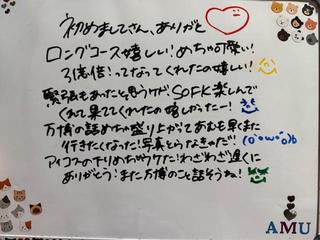 初めましてさん、ありがと
ロングコース嬉しい!めちゃ可愛い!
って なってくれたの嬉しい!
緊張もあったと思うケド、SOFK楽しんで
くれて果ててくれたの嬉しかったー!
万博の話めちゃ盛り上がってあむも早くまた
行きたくなった!写真とらなきゃだ!!(o^ω^o)b
アイコスのやりめちゃウケた!わざわざ遠くに
ありがとう!また万博のこと話そうね!
AMU